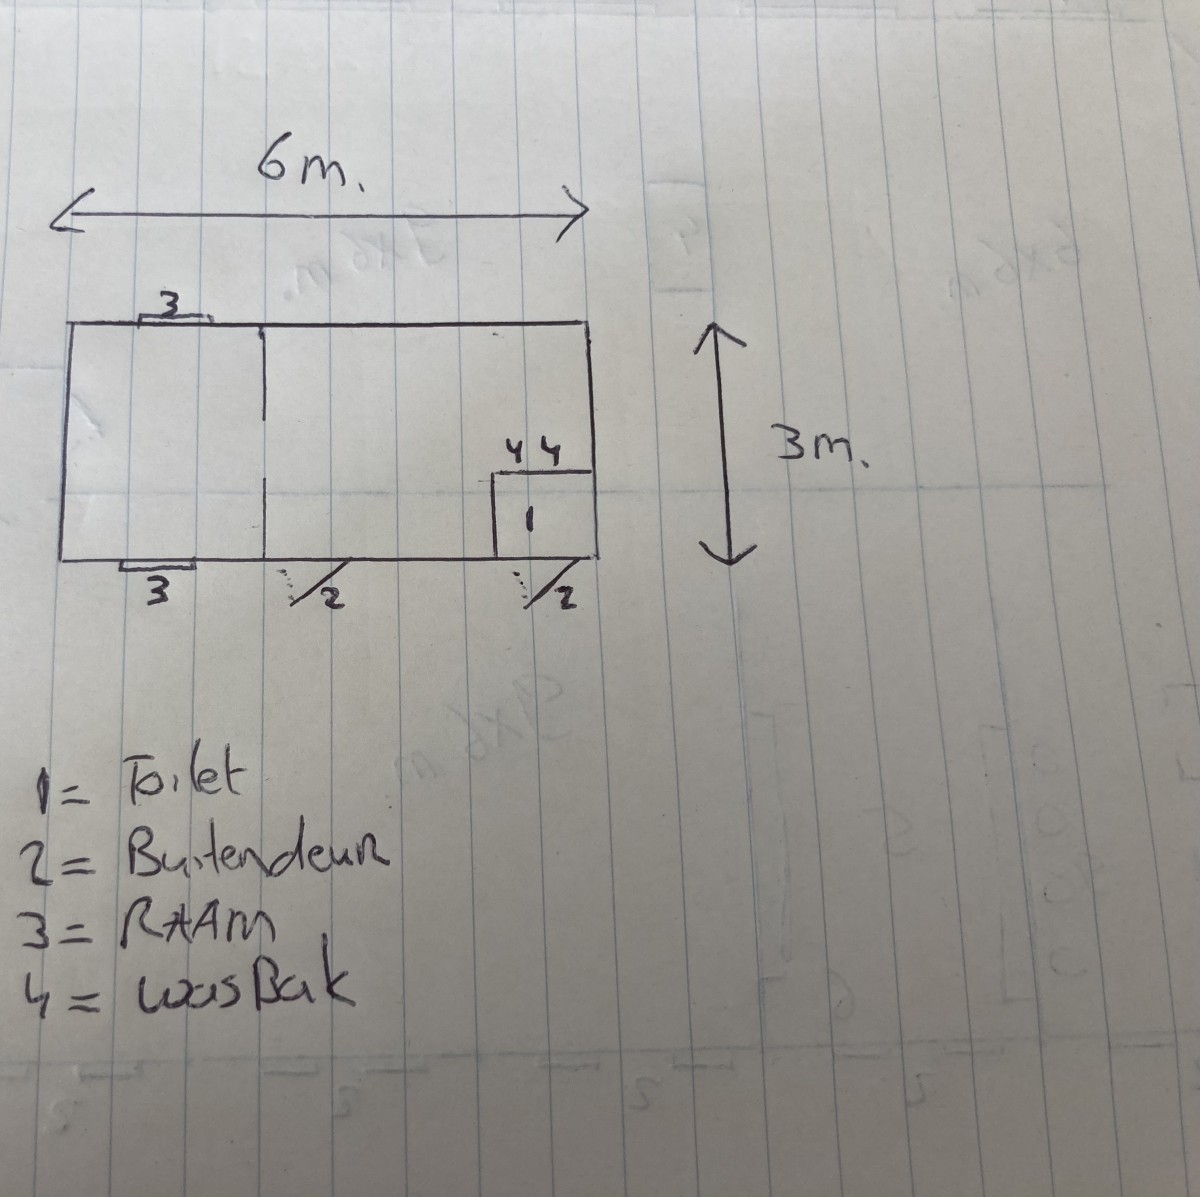 6m.
3
3m.
4 4
1
3
2
2
1= Toilet
2= Buitendeur
3= RAAM
4= wasBak